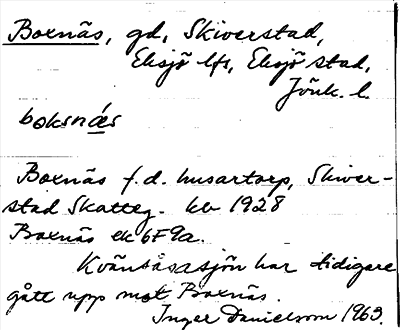 Boxnäs, gd, Skiverstad,
Eksjö lfs, Eksjö stad,
Jönk. l.
boksnäs
Boxnäs f.d. husartorp, Skiver-
stad Skatteg. kb 1928
Boxnäs ek 6F9a.
Kväntåsasjön har tidigare
gått upp mot Boxnäs.
Inger Danielsson 1963.